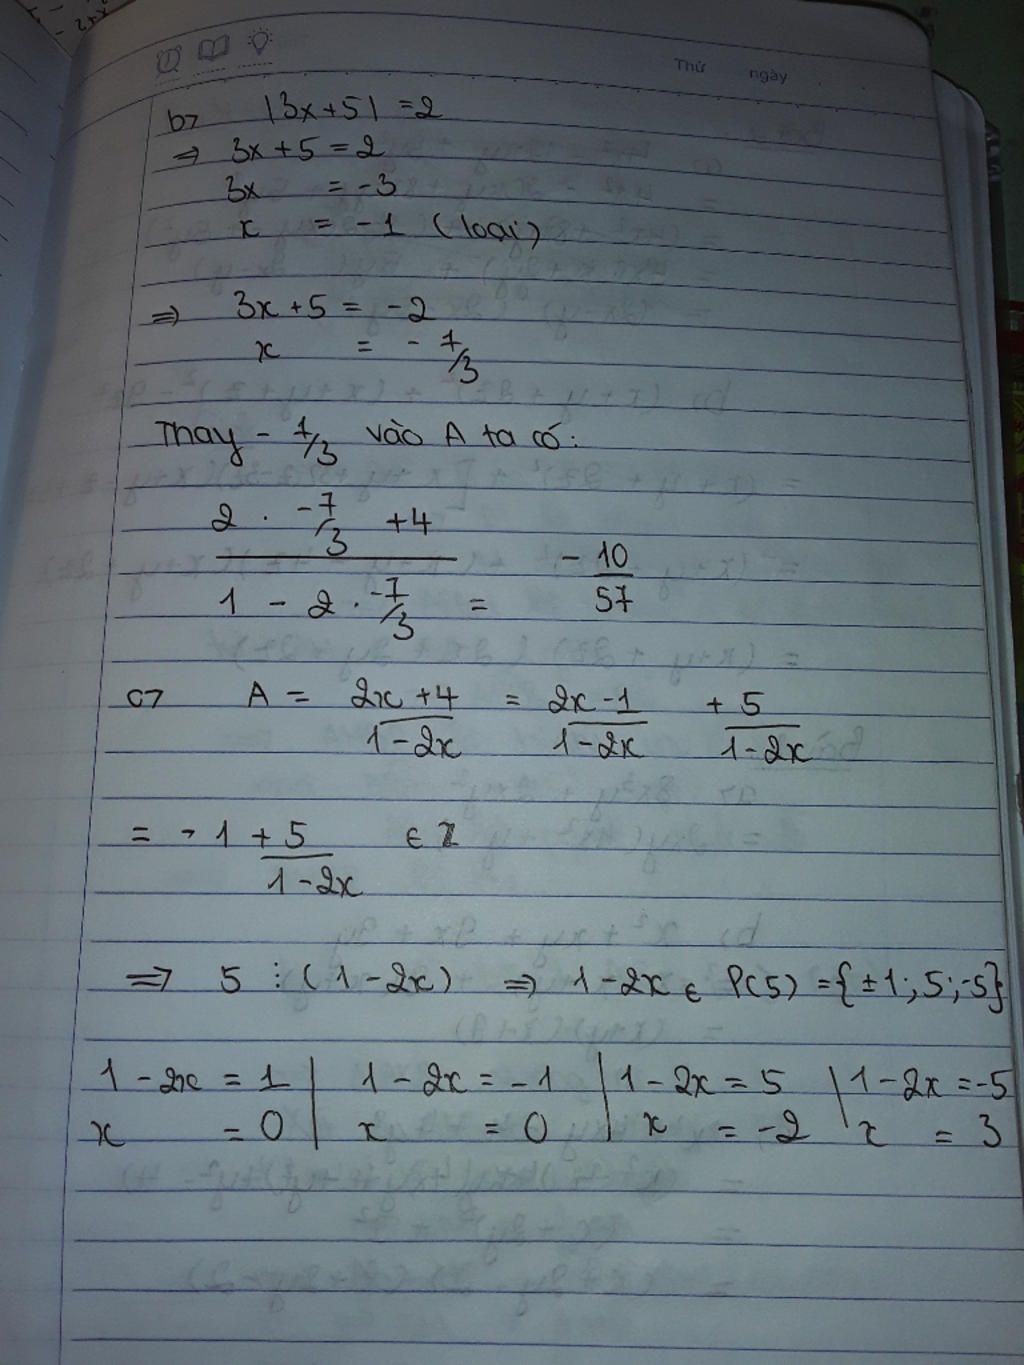 Thứ ngày
b7 |3x+5| =2
=> 3x+5 =2
3x = -3
x = -1 (loại)
=> 3x+5 = -2
x = - 7/3
Thay - 7/3 vào A ta có:
2 . -7/3 +4
1 - 2 . -7/3 = - 10/57
c7 A = 2x+4/1-2x = 2x-1/1-2x + 5/1-2x
= -1 + 5/1-2x ∈ Z
=> 5 ⋮ (1-2x) => 1-2x ∈ Ư(5) = {±1; 5; -5}
1 - 2x = 1 | 1 - 2x = -1 | 1 - 2x = 5 | 1 - 2x = -5
x = 0 | x = 0 | x = -2 | x = 3